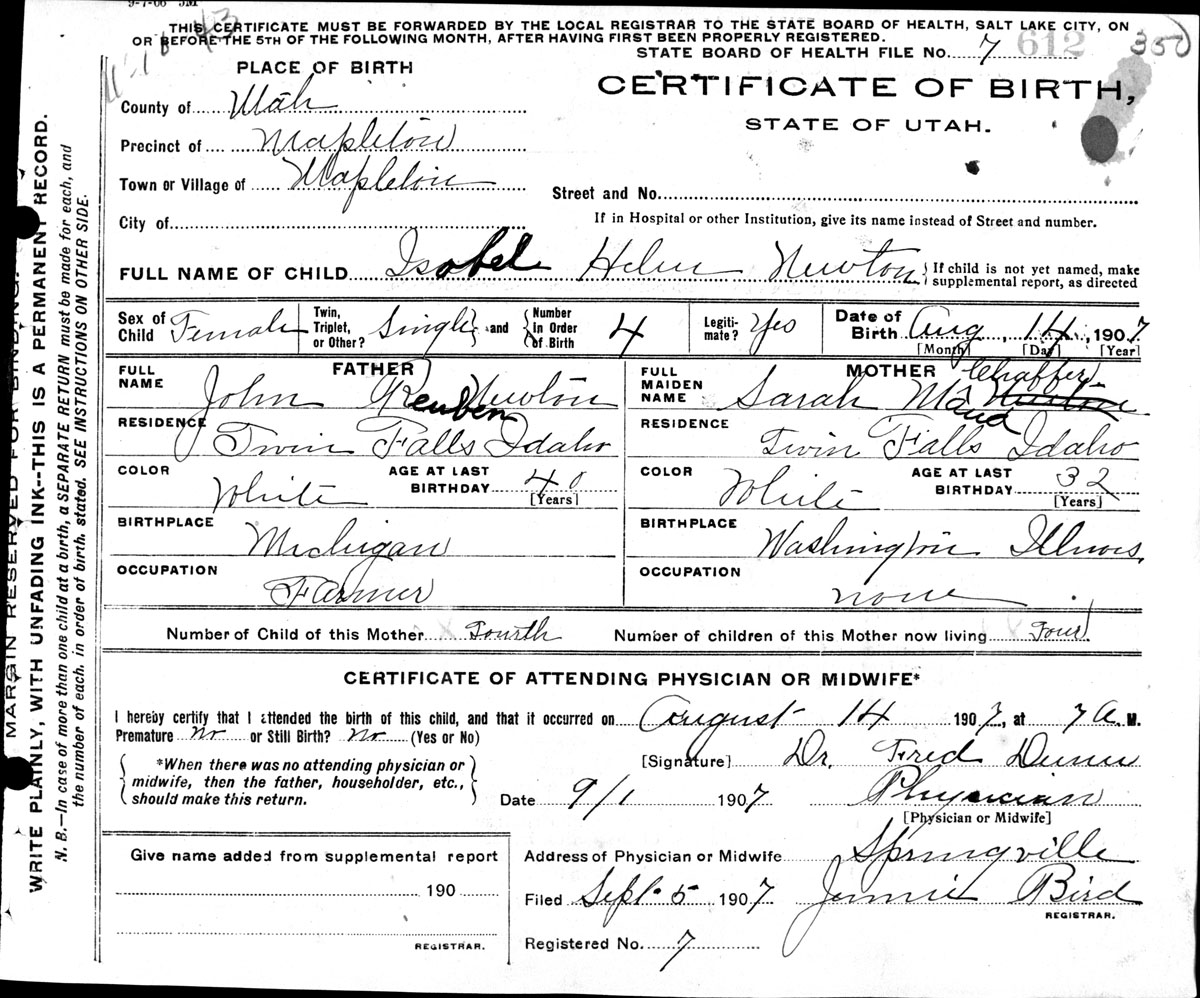 9-7-06 5M
THIS CERTIFICATE MUST BE FORWARDED BY THE LOCAL REGISTRAR TO THE STATE BOARD OF HEALTH, SALT LAKE CITY, ON
OR BEFORE THE 5TH OF THE FOLLOWING MONTH, AFTER HAVING FIRST BEEN PROPERLY REGISTERED.
STATE BOARD OF HEALTH FILE No. 7 612 350
PLACE OF BIRTH
CERTIFICATE OF BIRTH,
STATE OF UTAH.
County of Utah
Precinct of Mapleton
Town or Village of Mapleton
Street and No.
City of
If in Hospital or other Institution, give its name instead of Street and number.
FULL NAME OF CHILD Isabel Helen Newton { If child is not yet named, make
supplemental report, as directed
Sex of Child Female Twin, Triplet, or Other? Single } and { Number in Order of Birth 4 Legitimate? Yes Date of Birth Aug, 14, 1907
[Month] [Day] [Year]
FATHER
MOTHER
FULL NAME John Reuben Newton
FULL MAIDEN NAME Sarah Maud Chaffer
RESIDENCE Twin Falls Idaho
RESIDENCE Twin Falls Idaho
COLOR White AGE AT LAST BIRTHDAY 40 [Years]
COLOR White AGE AT LAST BIRTHDAY 32 [Years]
BIRTHPLACE Michigan
BIRTHPLACE Washington Illinois
OCCUPATION Farmer
OCCUPATION none
Number of Child of this Mother Fourth Number of children of this Mother now living Four
CERTIFICATE OF ATTENDING PHYSICIAN OR MIDWIFE*
I hereby certify that I attended the birth of this child, and that it occurred on August 14 1907, at 7 A. M.
Premature No or Still Birth? No (Yes or No)
{ *When there was no attending physician or
midwife, then the father, householder, etc.,
should make this return. }
[Signature] Dr. Fred Dunn
Date 9/1 1907 Physician
[Physician or Midwife]
Give name added from supplemental report
190
REGISTRAR.
Address of Physician or Midwife Springville
Filed Sept. 5 1907 Jennie Bird
REGISTRAR.
Registered No. 7
MARGIN RESERVED FOR BINDING.
WRITE PLAINLY, WITH UNFADING INK--THIS IS A PERMANENT RECORD.
N. B.—In case of more than one child at a birth, a SEPARATE RETURN must be made for each, and
the number of each, in order of birth, stated. SEE INSTRUCTIONS ON OTHER SIDE.